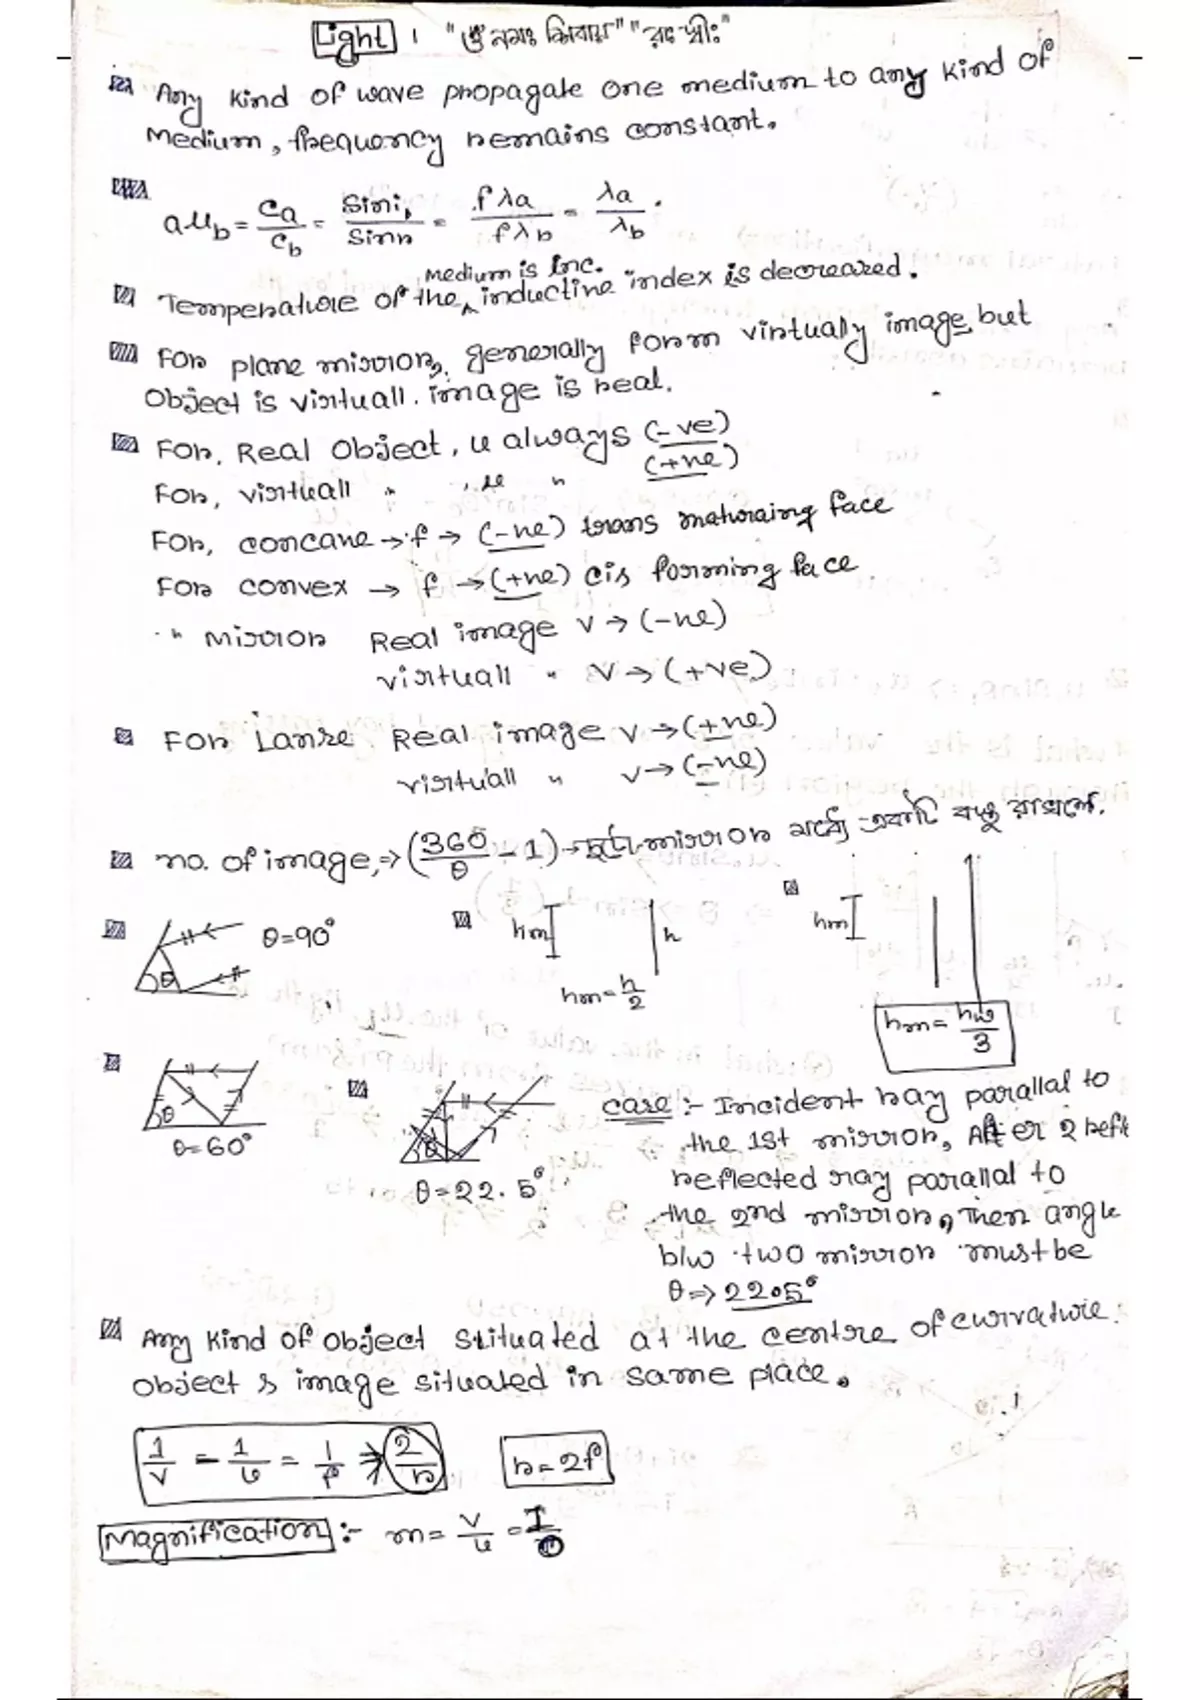 Light। "ওঁ নমঃ শিবায়" "রং শ্রীঃ"
Any kind of wave propagate one medium to any kind of
Medium, frequency remains constant.
aμb = Ca/Cb = Sini/Sinr = fλa/fλb = λa/λb.
medium is Inc.
Temperature of the ^ inductive index is decreased.
For plane mirror, generally form virtually image, but
Object is virtuall. image is real.
For, Real Object, u always (-ve)
For, virtuall " , u " (+ve)
For, concave → f → (-ve) trans maturaing face
For convex → f → (+ve) cis forming face
" mirror Real image v → (-ve)
virtuall " v → (+ve)
For Lanse Real image v → (+ve)
virtuall " v → (-ve)
no. of image, ⇒ (360/θ - 1) → দুটি mirror মধ্যে একটি বস্তু রাখলে.
θ=90°
hm
h
hm = h/2
hm
hm = hw/3
θ
θ=60°
θ
θ=22.5°
case :- Incident ray parallal to
the 1st mirror, After 2 refl
reflected ray parallal to
the 2nd mirror, Then angle
b/w two mirror must be
θ ⇒ 22.5°
Any kind of object situated at the centre of curvature.
object & image situated in same place.
1/v - 1/u = 1/f ⇒ 2/r
r = 2f
Magnification :- m = v/u = I/O